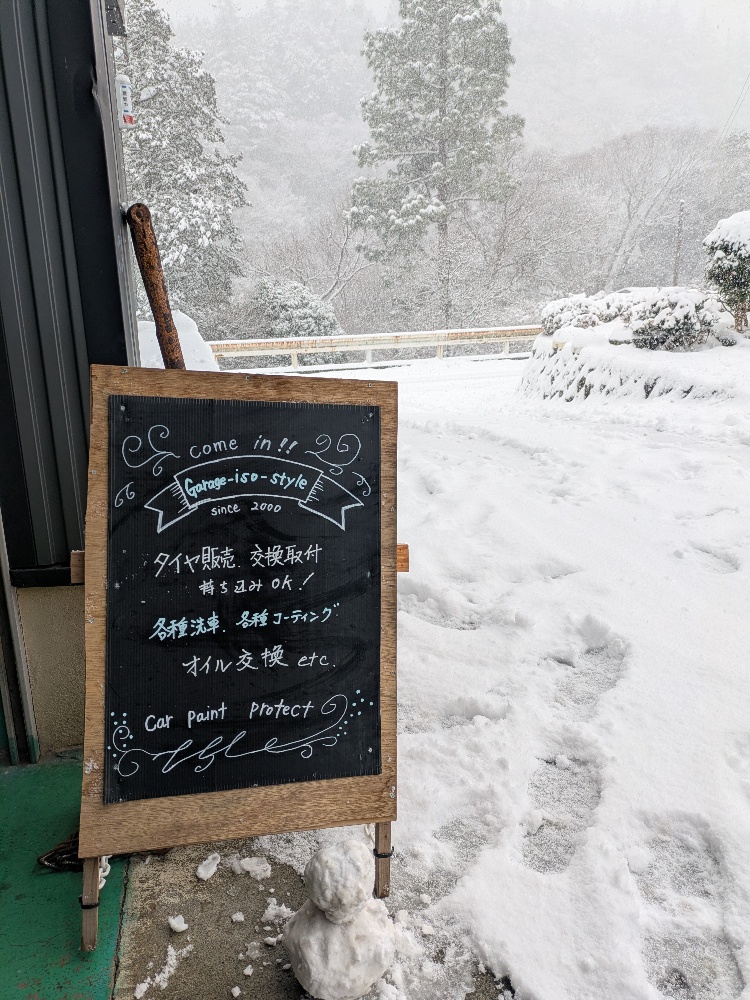 come in!!
Garage-iso-style
since 2000
タイヤ販売、交換取付
持ち込みOK!
各種洗車、各種コーティング
オイル交換 etc.
Car paint protect